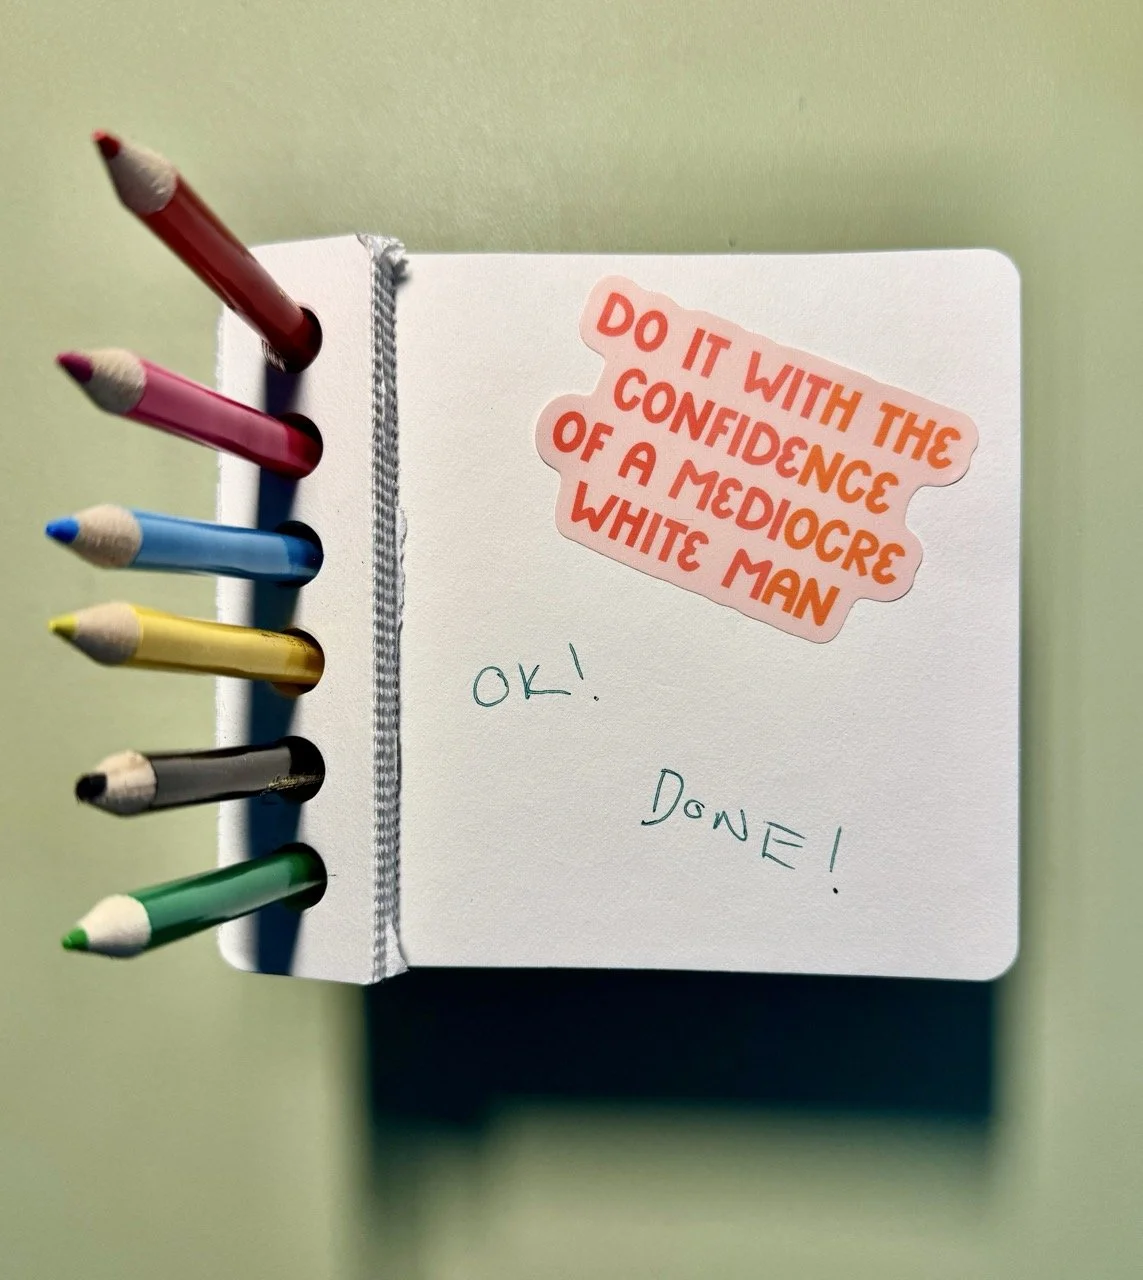 DO IT WITH THE
CONFIDENCE
OF A MEDIOCRE
WHITE MAN
OK!
DONE!